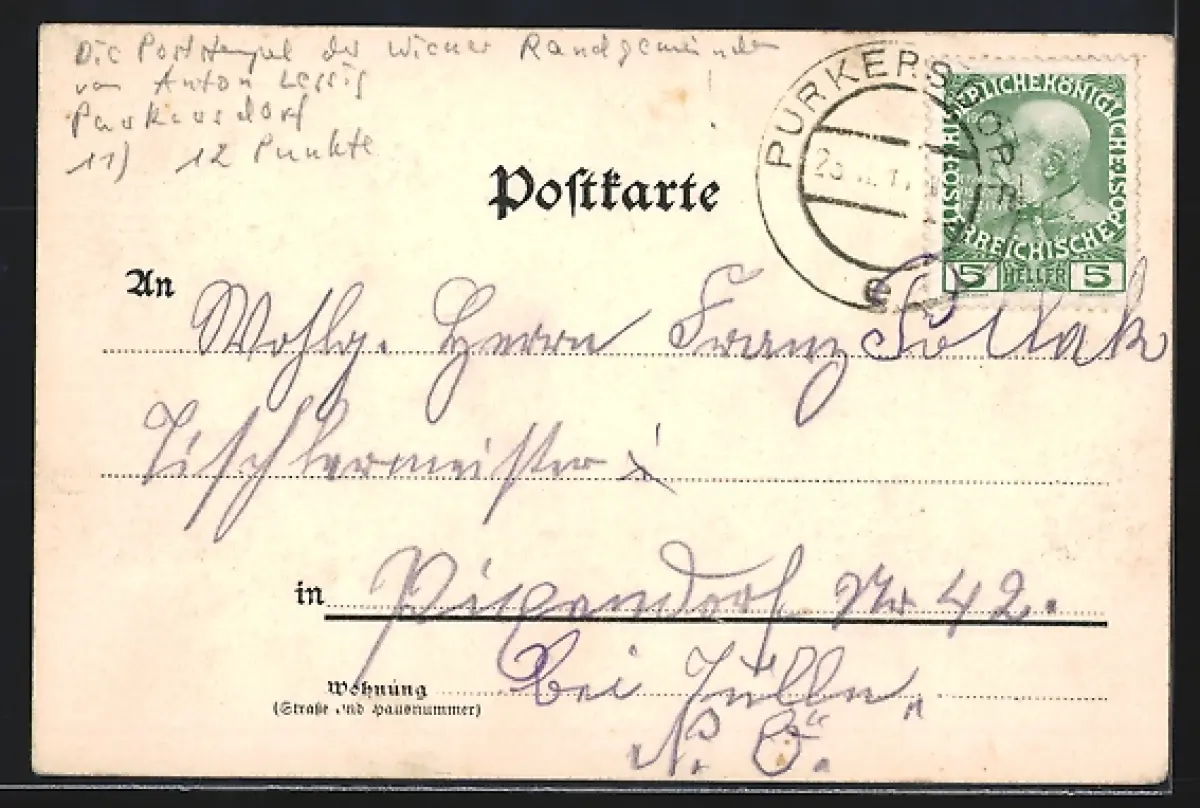 Die Poststempel der Wiener Randgemeinden
von Anton Lessig
Purkersdorf
11) 12 Punkte
PURKERSDORF
e
KAISERLICHE KÖNIGLICHE ÖSTERREICHISCHE POST
5 HELLER 5
Postkarte
An
Wohlg. Herrn Franz Pollak
Tischlermeister
in
Nr 42.
Wohnung
bei Tulln
(Straße und Hausnummer)
N. Ö.